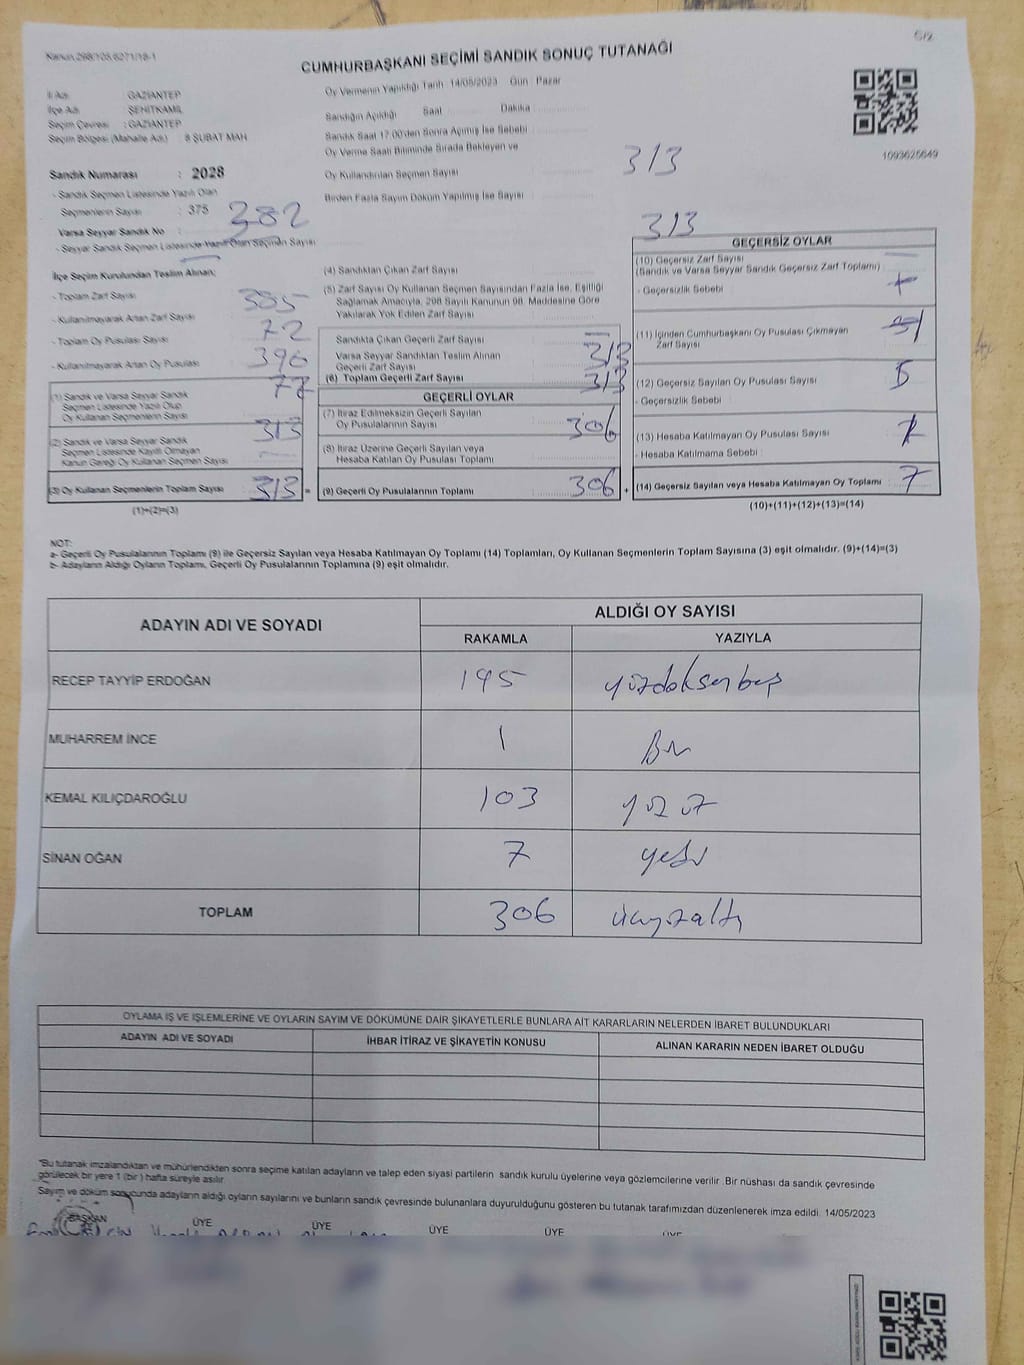 Kanun 298/105,6271/18-1
C/2
CUMHURBAŞKANI SEÇİMİ SANDIK SONUÇ TUTANAĞI
İl Adı : GAZİANTEP
İlçe Adı : ŞEHİTKAMİL
Seçim Çevresi : GAZİANTEP
Seçim Bölgesi (Mahalle Adı) : 8 ŞUBAT MAH
Sandık Numarası : 2028
- Sandık Seçmen Listesinde Yazılı Olan
Seçmenlerin Sayısı : 375 382
Varsa Seyyar Sandık No :
- Seyyar Sandık Seçmen Listesinde Yazılı Olan Seçmen Sayısı
Oy Vermenin Yapıldığı Tarih 14/05/2023 Gün : Pazar
Sandığın Açıldığı Saat Dakika
Sandık Saat 17.00'den Sonra Açılmış İse Sebebi :
Oy Verme Saati Bitiminde Sırada Bekleyen ve
Oy Kullandırılan Seçmen Sayısı 313
Birden Fazla Sayım Döküm Yapılmış İse Sayısı
1093625649
İlçe Seçim Kurulundan Teslim Alınan;
- Toplam Zarf Sayısı 385
- Kullanılmayarak Artan Zarf Sayısı 72
- Toplam Oy Pusulası Sayısı 390
- Kullanılmayarak Artan Oy Pusulası 77
(1) Sandık ve Varsa Seyyar Sandık
Seçmen Listesinde Yazılı Olup
Oy Kullanan Seçmenlerin Sayısı 313
(2) Sandık ve Varsa Seyyar Sandık
Seçmen Listesinde Kayıtlı Olmayan
Kanun Gereği Oy Kullanan Seçmen Sayısı
(3) Oy Kullanan Seçmenlerin Toplam Sayısı 313 =
(1)+(2)=(3)
313
(4) Sandıktan Çıkan Zarf Sayısı
(5) Zarf Sayısı Oy Kullanan Seçmen Sayısından Fazla İse, Eşitliği
Sağlamak Amacıyla, 298 Sayılı Kanunun 98. Maddesine Göre
Yakılarak Yok Edilen Zarf Sayısı
Sandıkta Çıkan Geçerli Zarf Sayısı
Varsa Seyyar Sandıktan Teslim Alınan
Geçerli Zarf Sayısı 313
(6) Toplam Geçerli Zarf Sayısı 313
GEÇERLİ OYLAR
(7) İtiraz Edilmeksizin Geçerli Sayılan
Oy Pusulalarının Sayısı 306
(8) İtiraz Üzerine Geçerli Sayılan veya
Hesaba Katılan Oy Pusulası Toplamı
(9) Geçerli Oy Pusulalarının Toplamı 306 +
GEÇERSİZ OYLAR
(10) Geçersiz Zarf Sayısı
(Sandık ve Varsa Seyyar Sandık Geçersiz Zarf Toplamı)
- Geçersizlik Sebebi :
(11) İçinden Cumhurbaşkanı Oy Pusulası Çıkmayan
Zarf Sayısı
(12) Geçersiz Sayılan Oy Pusulası Sayısı 5
- Geçersizlik Sebebi :
(13) Hesaba Katılmayan Oy Pusulası Sayısı
- Hesaba Katılmama Sebebi :
(14) Geçersiz Sayılan veya Hesaba Katılmayan Oy Toplamı 7
(10)+(11)+(12)+(13)=(14)
NOT:
a- Geçerli Oy Pusulalarının Toplamı (9) ile Geçersiz Sayılan veya Hesaba Katılmayan Oy Toplamı (14) Toplamları, Oy Kullanan Seçmenlerin Toplam Sayısına (3) eşit olmalıdır. (9)+(14)=(3)
b- Adayların Aldığı Oyların Toplamı, Geçerli Oy Pusulalarının Toplamına (9) eşit olmalıdır.
ADAYIN ADI VE SOYADI ALDIĞI OY SAYISI
RAKAMLA YAZIYLA
RECEP TAYYİP ERDOĞAN 195 yüzdoksanbeş
MUHARREM İNCE 1 Bir
KEMAL KILIÇDAROĞLU 103 yüzüç
SİNAN OĞAN 7 yedi
TOPLAM 306 üçyüzaltı
OYLAMA İŞ VE İŞLEMLERİNE VE OYLARIN SAYIM VE DÖKÜMÜNE DAİR ŞİKAYETLERLE BUNLARA AİT KARARLARIN NELERDEN İBARET BULUNDUKLARI
ADAYIN ADI VE SOYADI İHBAR İTİRAZ VE ŞİKAYETİN KONUSU ALINAN KARARIN NEDEN İBARET OLDUĞU
"Bu tutanak imzalandıktan ve mühürlendikten sonra seçime katılan adayların ve talep eden siyasi partilerin sandık kurulu üyelerine veya gözlemcilerine verilir .Bir nüshası da sandık çevresinde
görülecek bir yere 1 (bir ) hafta süreyle asılır
Sayım ve döküm sonucunda adayların aldığı oyların sayılarını ve bunların sandık çevresinde bulunanlara duyurulduğunu gösteren bu tutanak tarafımızdan düzenlenerek imza edildi. 14/05/2023
BAŞKAN ÜYE ÜYE ÜYE ÜYE ÜYE